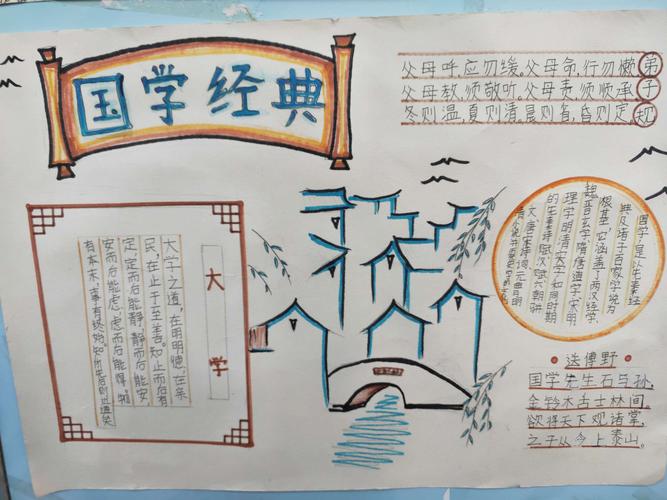 国学经典
父母呼,应勿缓。父母命,行勿懒
父母教,须敬听。父母责,须顺承
冬则温,夏则清。晨则省,昏则定。
弟子规
大学
大学之道,在明明德,在亲
民,在止于至善。知止而后有
定,定而后能静,静而后能安
安而后能虑,虑而后能得。物
有本末,事有终始。知所先后则近道矣
国学是以先秦经
典及诸子百家学说为
根基,它涵盖了两汉经学,
魏晋玄学,隋唐道学,宋明
理学,明清实学和同时期
的先秦诗赋,汉赋,六朝骈
文,唐宋诗词,元曲,明
送傅野
国学先生石与孙,
金铃木占士林间。
欲将天下观诸掌,
之子从今上泰山。